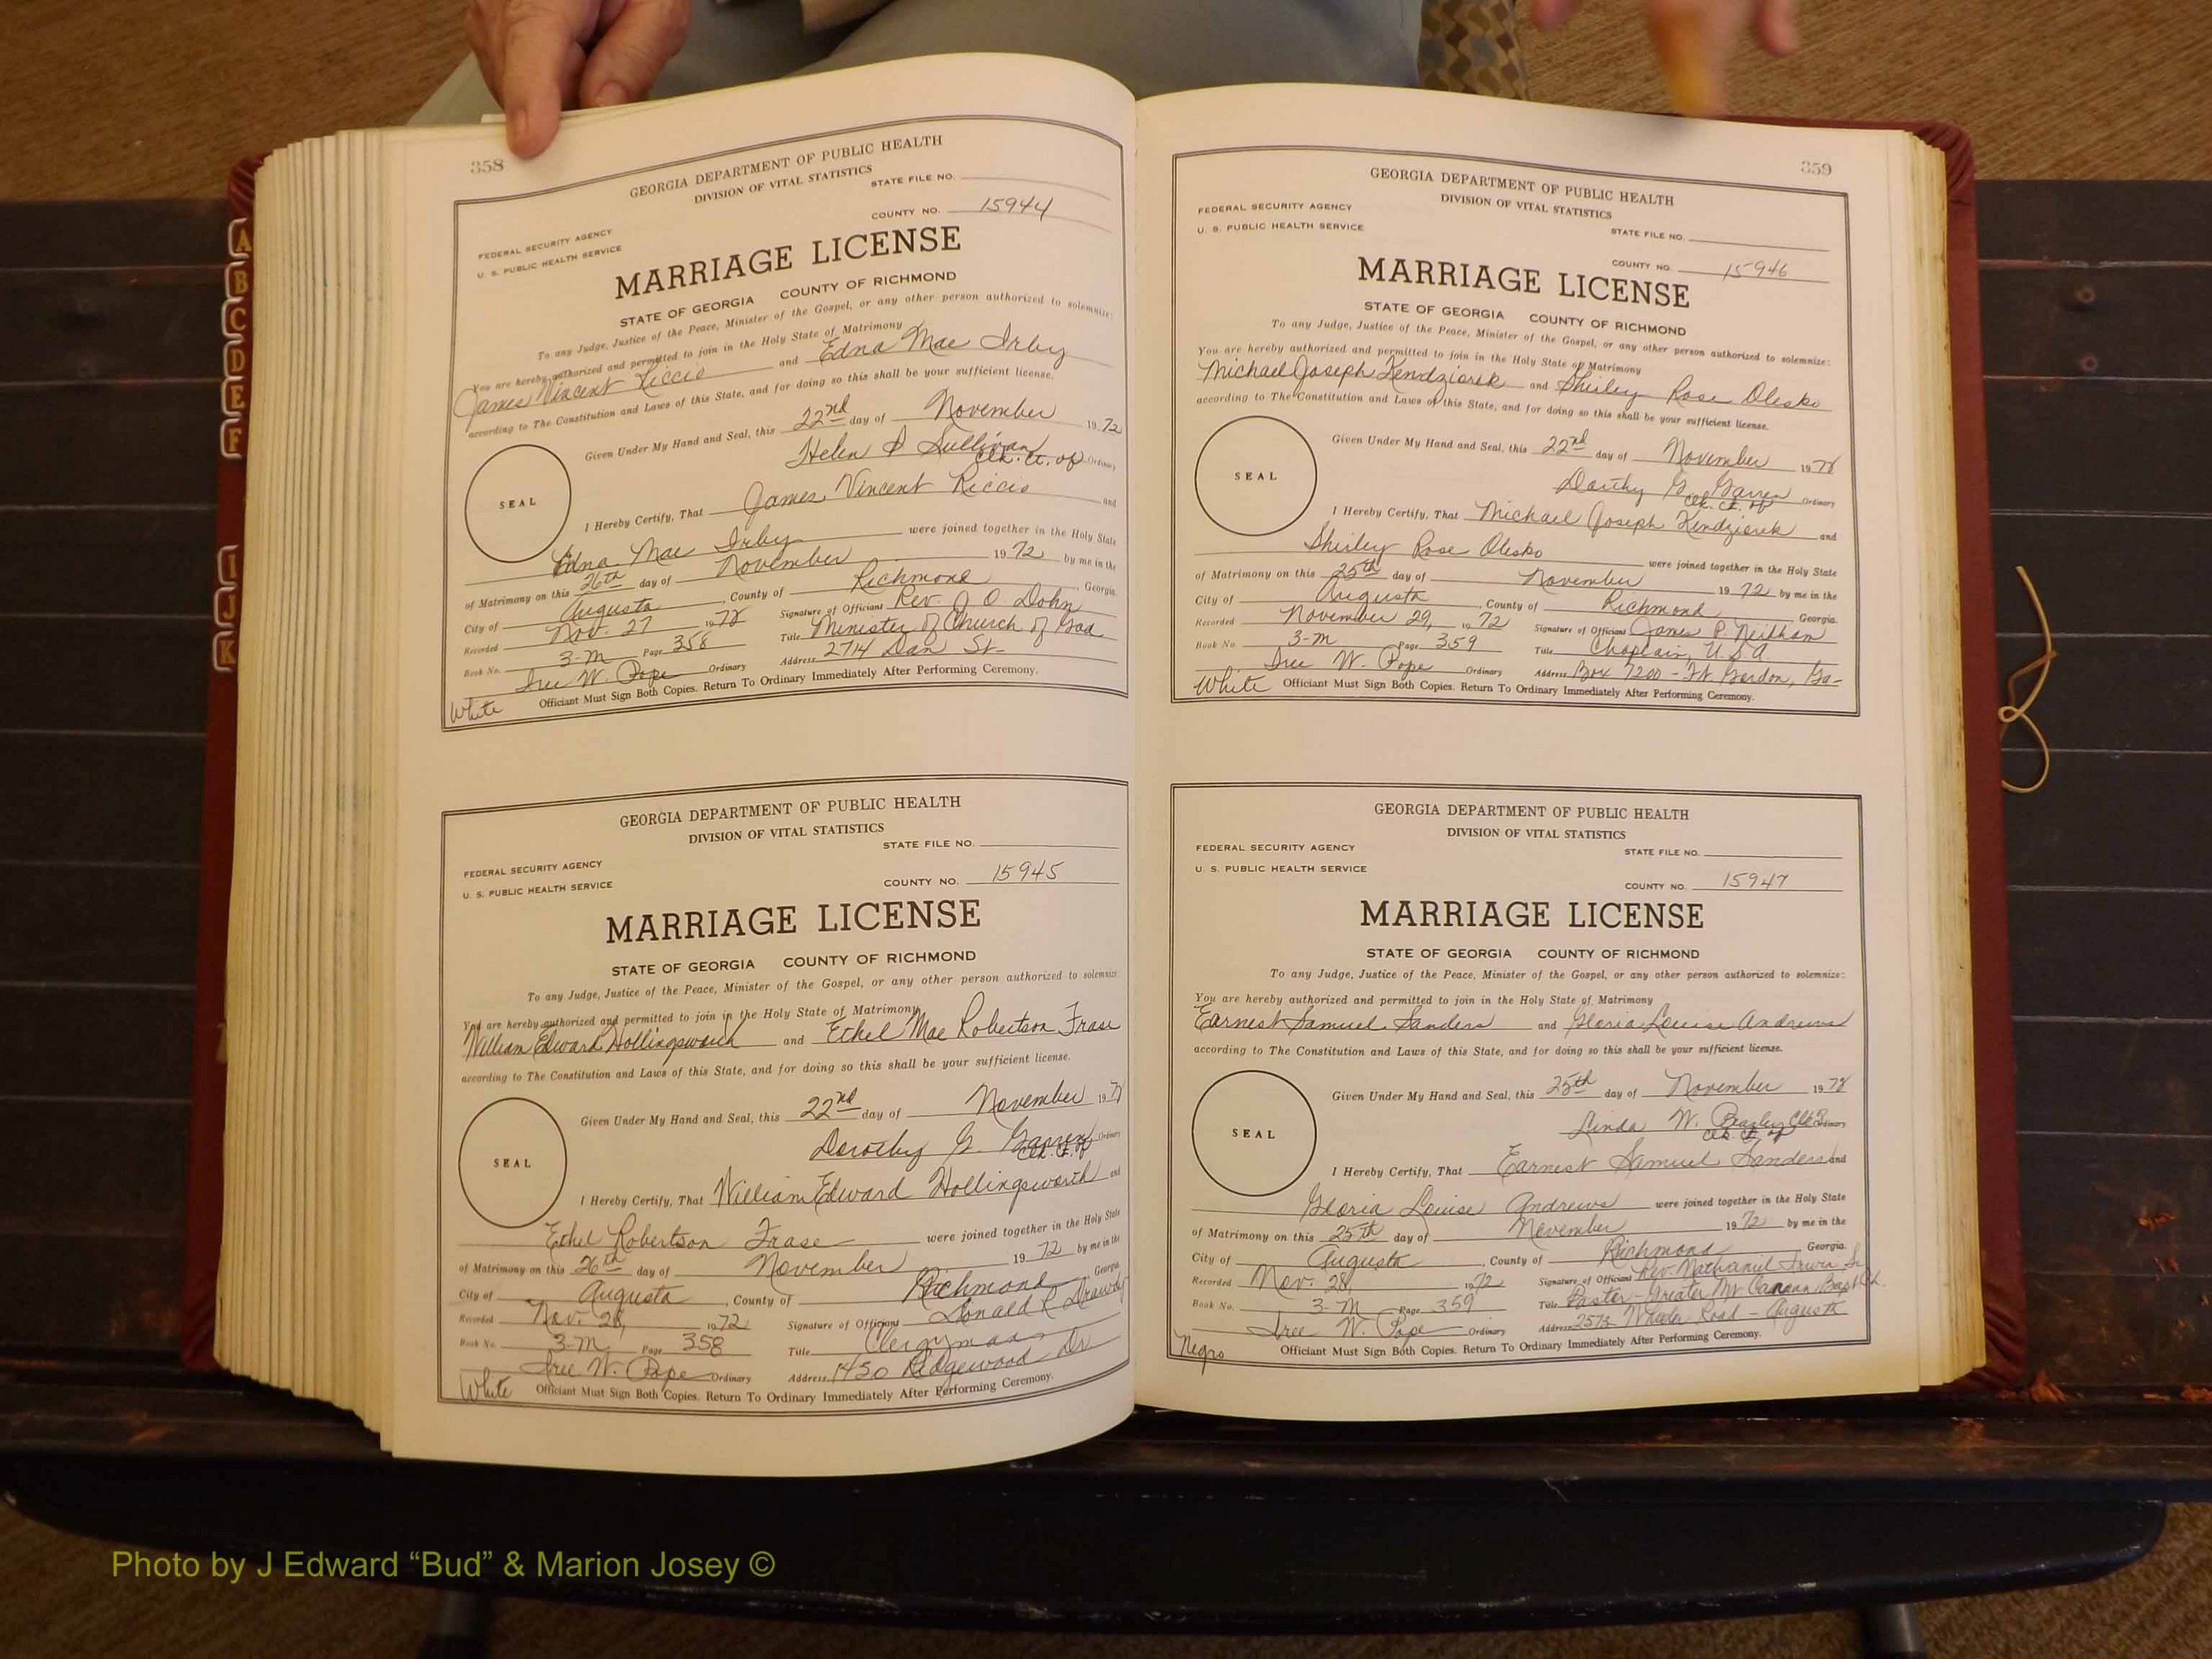 358
GEORGIA DEPARTMENT OF PUBLIC HEALTH
DIVISION OF VITAL STATISTICS
STATE FILE NO.
COUNTY NO. 15944
FEDERAL SECURITY AGENCY
U. S. PUBLIC HEALTH SERVICE
MARRIAGE LICENSE
STATE OF GEORGIA COUNTY OF RICHMOND
To any Judge, Justice of the Peace, Minister of the Gospel, or any other person authorized to solemnize:
You are hereby authorized and permitted to join in the Holy State of Matrimony
James Vincent Riccio and Edna Mae Irby
according to The Constitution and Laws of this State, and for doing so this shall be your sufficient license.
Given Under My Hand and Seal, this 22nd day of November 1972
Helen Sullivan
Clk. Ct. of Ordinary
SEAL
I Hereby Certify, That James Vincent Riccio and
Edna Mae Irby were joined together in the Holy State
of Matrimony on this 26th day of November 1972 by me in the
City of Augusta, County of Richmond, Georgia.
Recorded Nov. 27 1972 Signature of Officiant Rev. J. O. Dohn
Book No. 3-M Page 358 Title Minister of Church of God
Iree W. Pope Ordinary Address 2714 Dan St.
White Officiant Must Sign Both Copies. Return To Ordinary Immediately After Performing Ceremony.
GEORGIA DEPARTMENT OF PUBLIC HEALTH
DIVISION OF VITAL STATISTICS
STATE FILE NO.
FEDERAL SECURITY AGENCY
U. S. PUBLIC HEALTH SERVICE
COUNTY NO. 15945
MARRIAGE LICENSE
STATE OF GEORGIA COUNTY OF RICHMOND
To any Judge, Justice of the Peace, Minister of the Gospel, or any other person authorized to solemnize:
You are hereby authorized and permitted to join in the Holy State of Matrimony
William Edward Hollingsworth and Ethel Mae Robertson Frase
according to The Constitution and Laws of this State, and for doing so this shall be your sufficient license.
Given Under My Hand and Seal, this 22nd day of November 197
Dorothy G. Garren
Clk. Ct. of Ordinary
SEAL
I Hereby Certify, That William Edward Hollingsworth and
Ethel Robertson Frase were joined together in the Holy State
of Matrimony on this 26th day of November 1972 by me in the
City of Augusta, County of Richmond, Georgia.
Recorded Nov. 28, 1972 Signature of Officiant Donald R
Book No. 3-M Page 358 Title Clergyman
Iree W. Pope Ordinary Address 1450 Ridgewood Dr.
White Officiant Must Sign Both Copies. Return To Ordinary Immediately After Performing Ceremony.
359
GEORGIA DEPARTMENT OF PUBLIC HEALTH
DIVISION OF VITAL STATISTICS
FEDERAL SECURITY AGENCY
U. S. PUBLIC HEALTH SERVICE
STATE FILE NO.
COUNTY NO. 15946
MARRIAGE LICENSE
STATE OF GEORGIA COUNTY OF RICHMOND
To any Judge, Justice of the Peace, Minister of the Gospel, or any other person authorized to solemnize:
You are hereby authorized and permitted to join in the Holy State of Matrimony
Michael Joseph Kendziorek and Shirley Rose Olesko
according to The Constitution and Laws of this State, and for doing so this shall be your sufficient license.
Given Under My Hand and Seal, this 22nd day of November 1972
Dorothy G. Garren
Clk. Ct. of Ordinary
SEAL
I Hereby Certify, That Michael Joseph Kendziorek and
Shirley Rose Olesko were joined together in the Holy State
of Matrimony on this 25th day of November 1972 by me in the
City of Augusta, County of Richmond, Georgia.
Recorded November 29, 1972 Signature of Officiant James P.
Book No. 3-M Page 359 Title Chaplain, U.S.A.
Iree W. Pope Ordinary Address Box 7200 - Ft. Gordon, Ga-
White Officiant Must Sign Both Copies. Return To Ordinary Immediately After Performing Ceremony.
GEORGIA DEPARTMENT OF PUBLIC HEALTH
DIVISION OF VITAL STATISTICS
FEDERAL SECURITY AGENCY
STATE FILE NO.
U. S. PUBLIC HEALTH SERVICE
COUNTY NO. 15947
MARRIAGE LICENSE
STATE OF GEORGIA COUNTY OF RICHMOND
To any Judge, Justice of the Peace, Minister of the Gospel, or any other person authorized to solemnize:
You are hereby authorized and permitted to join in the Holy State of Matrimony
Earnest Samuel Sanders and Gloria Louise Andrews
according to The Constitution and Laws of this State, and for doing so this shall be your sufficient license.
Given Under My Hand and Seal, this 25th day of November 1972
Linda W. Beazley
Clk. Ct. of Ordinary
SEAL
I Hereby Certify, That Earnest Samuel Sanders and
Gloria Louise Andrews were joined together in the Holy State
of Matrimony on this 25th day of November 1972 by me in the
City of Augusta, County of Richmond, Georgia.
Recorded Nov. 28, 1972 Signature of Officiant Rev. Nathaniel Irwin Sr.
Book No. 3-M Page 359 Title Pastor - Greater Mt Canaan Bapt Ch.
Iree W. Pope Ordinary Address 2573 Wheeler Road - Augusta
Negro Officiant Must Sign Both Copies. Return To Ordinary Immediately After Performing Ceremony.
A
B
C
D
E
F
I
J
K
Photo by J Edward “Bud” & Marion Josey ©